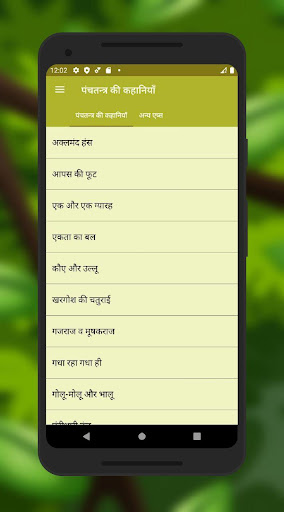 12:02
पंचतन्त्र की कहानियाँ
पंचतन्त्र की कहानियाँ अन्य एप्स
अक्लमंद हंस
आपस की फूट
एक और एक ग्यारह
एकता का बल
कौए और उल्लू
खरगोश की चतुराई
गजराज व मूषकराज
गधा रहा गधा ही
गोलू-मोलू और भालू